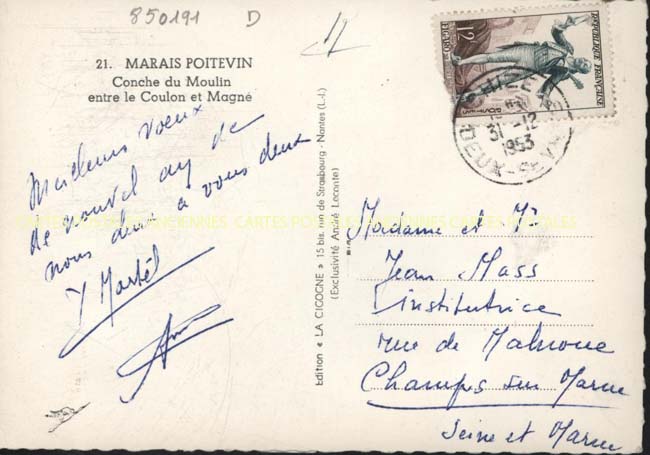 850191 D
21. MARAIS POITEVIN
Conche du Moulin
entre le Coulon et Magné
Meilleurs voeux
de nouvel an de
nous deux à vous deux
Y Martel
Edition « LA CICOGNE » 15 bis, rue de Strasbourg - Nantes (L.-I.)
(Exclusivité André Leconte)
12
REPUBLIQUE FRANÇAISE
CHIZE
31-12
1953
DEUX-SEVRES
Madame et Mr
Jean Mass
Institutrice
rue de Malnoue
Champs sur Marne
Seine et Marne
CARTES POSTALES ANCIENNES CARTES POSTALES